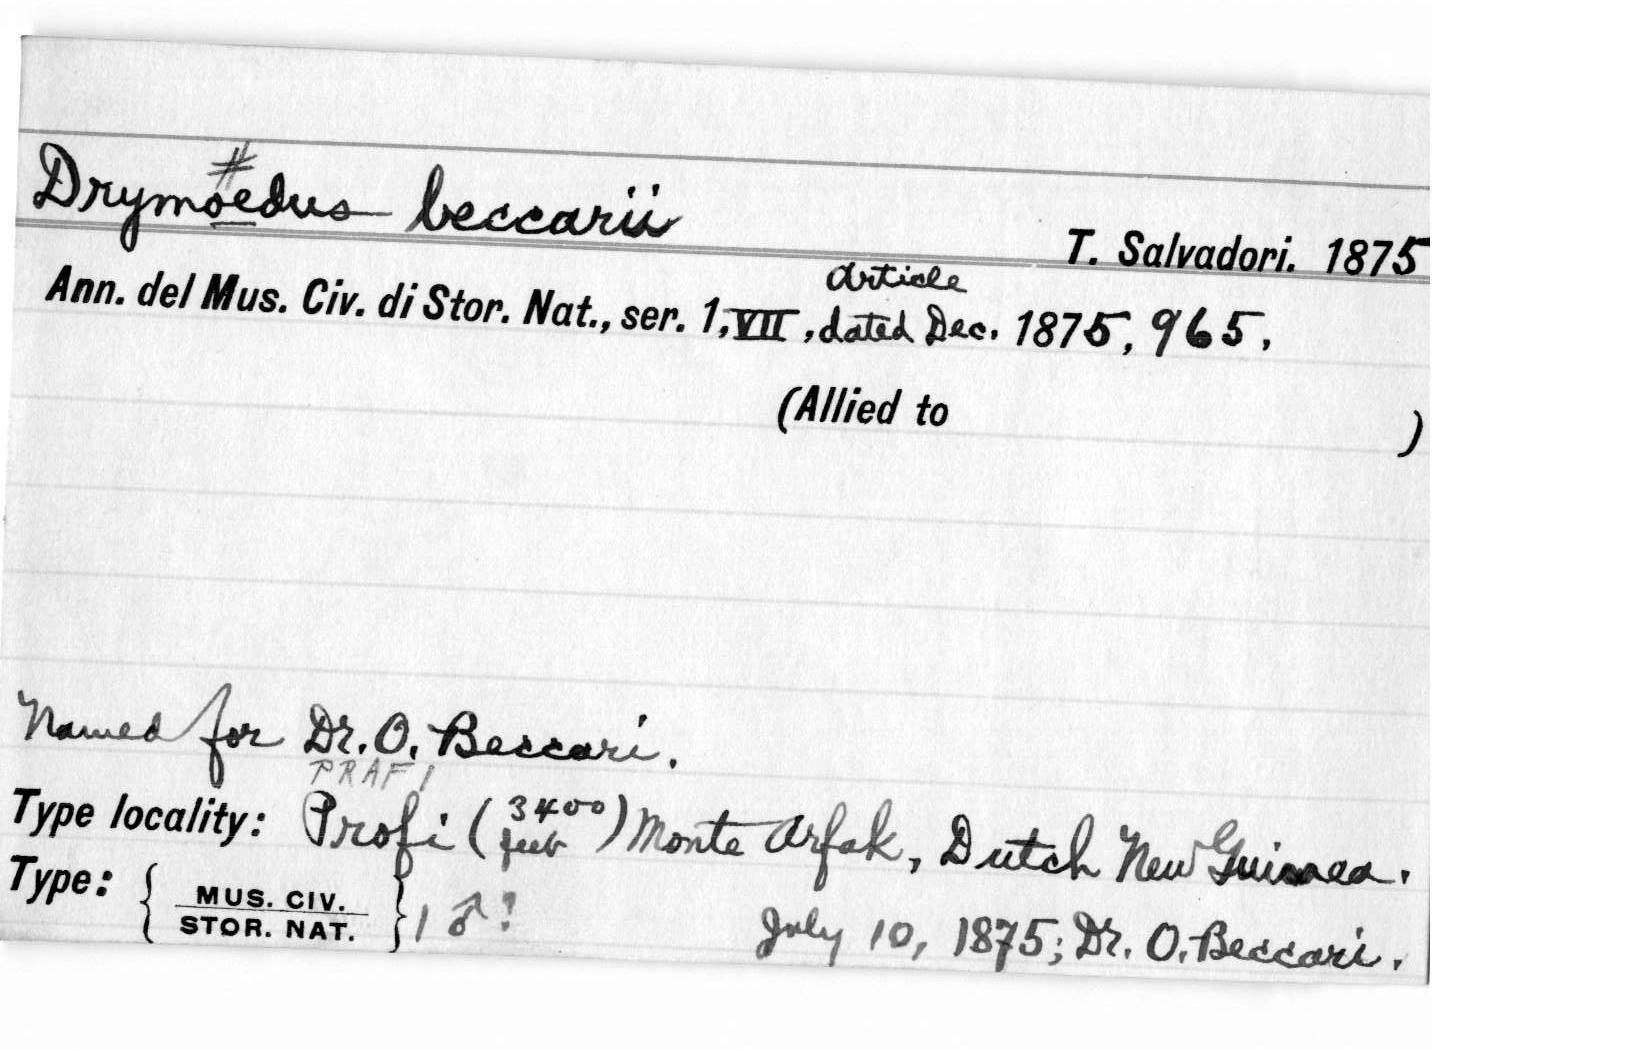 #
Drymoedus beccarii
T. Salvadori. 1875
Article
Ann. del Mus. Civ. di Stor. Nat., ser. 1, VII, dated Dec. 1875, 965.
(Allied to )
Named for Dr. O. Beccari.
PRAFI
Type locality: Profi (3400 feet) Monte Arfak, Dutch New Guinea.
Type: { MUS. CIV. STOR. NAT. } 1 ♂? July 10, 1875; Dr. O. Beccari.